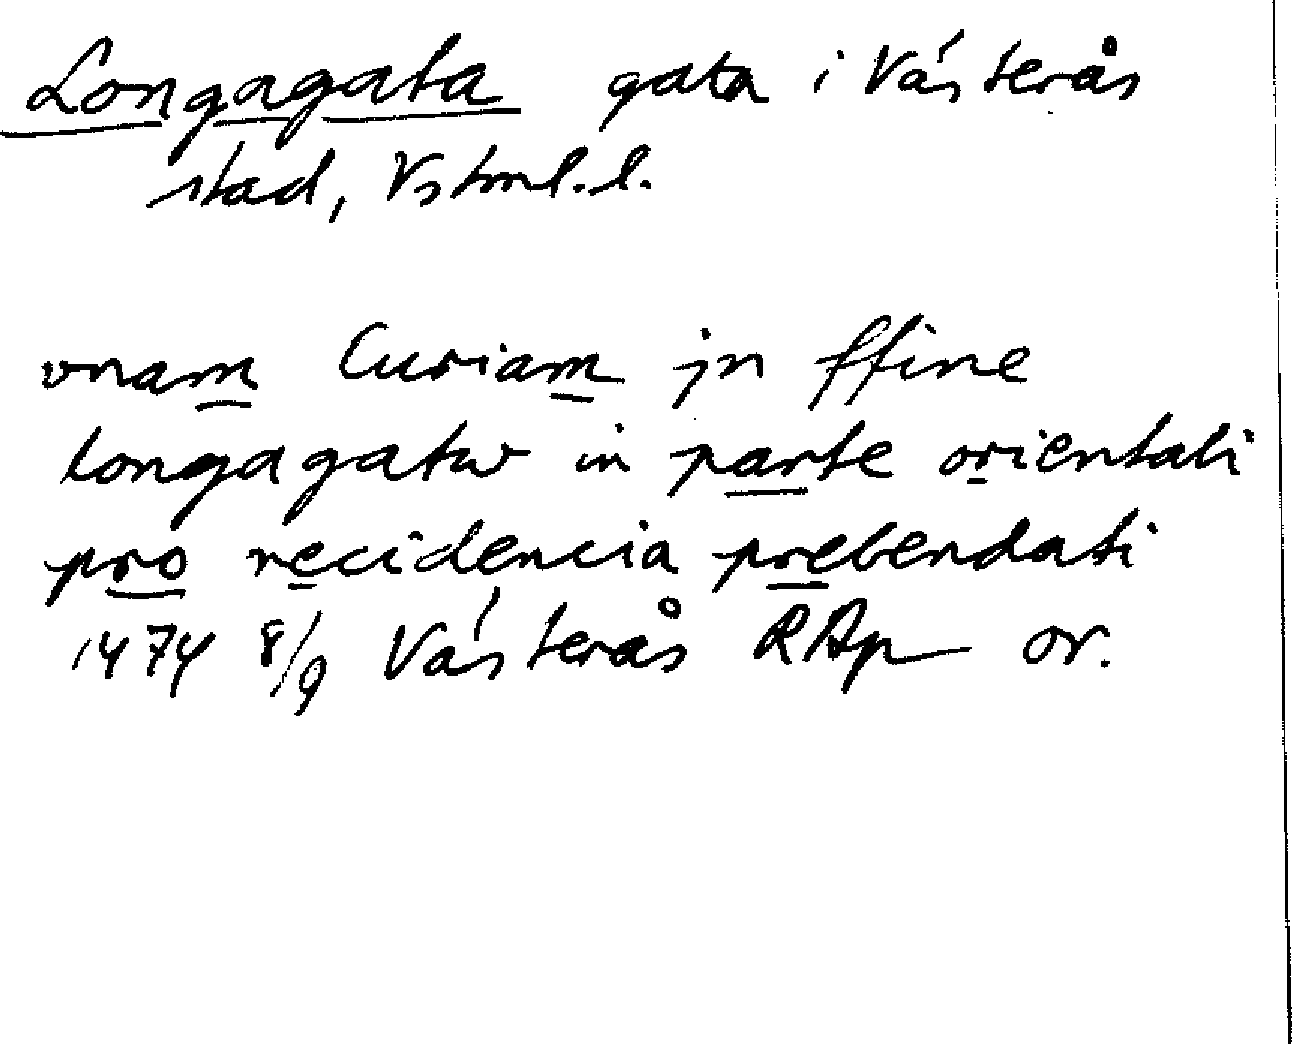 Longagata gata i Västerås
stad, Vstml.l.
vnam Curiam jn ffine
longagatw in parte orientali
pro recidencia prebendati
1474 8/9 Västerås RAp or.